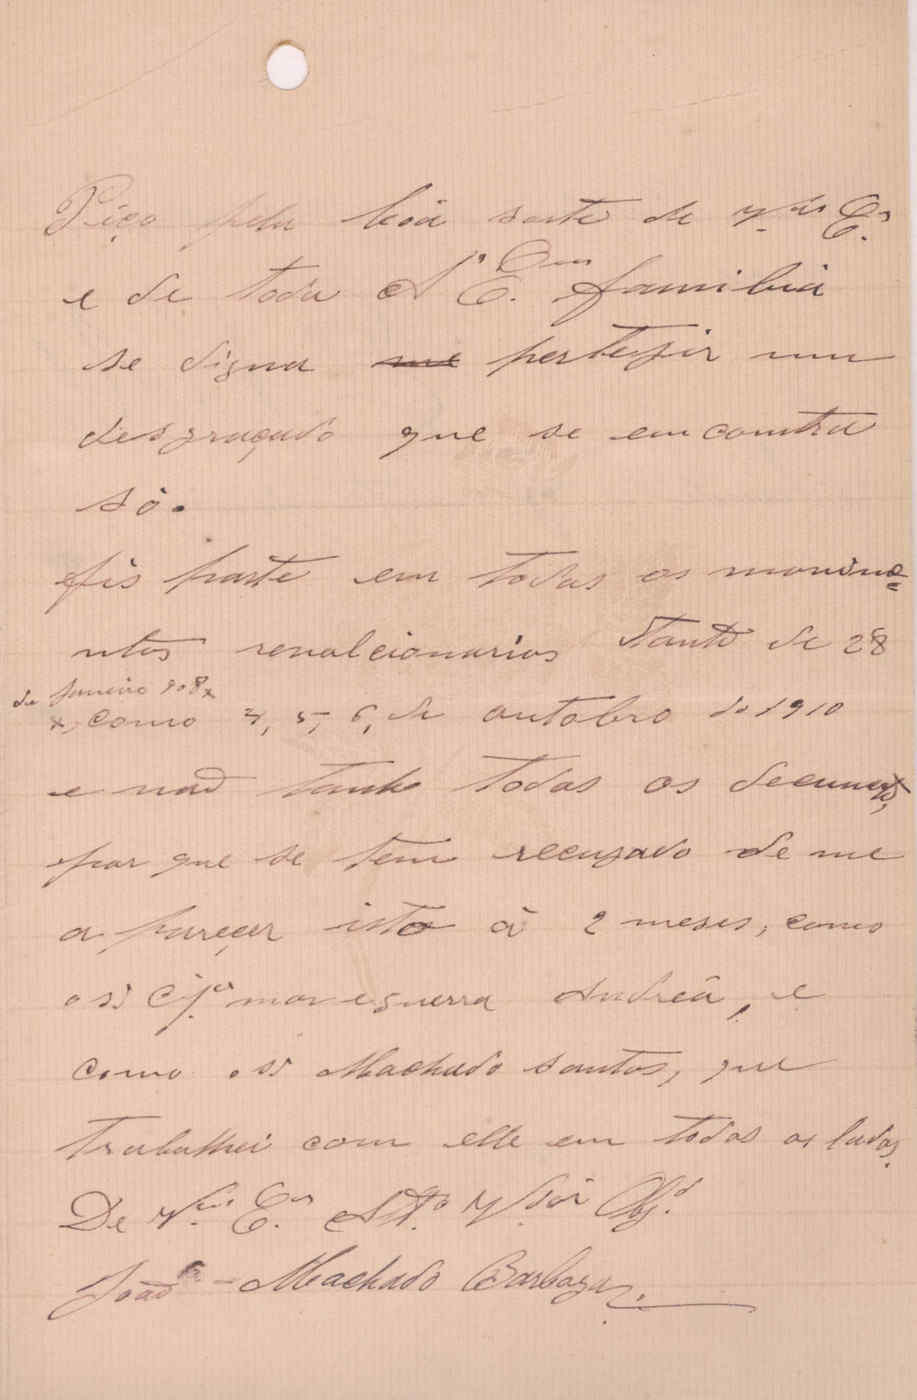 Piço pela boâ sorte de V.as E.as
e de toda A S.a E.ma familia
se digna me pertegir um
desgraçado que se emcomtra
só.
fis parte em todos os movime=
ntos revolcionarios tanto de 28
de Janeiro 908 x
x, como 4, 5, 6, de outobro do 1910
e não tenho todos os decumentos,
por que se tem recuzado de me
a pareçer isto à 2 meses, como
o sr mor e guerra Andreâ, e
como o sr Machado santos, que
trabalhei com elle em todos os lados.
De V. E.as At.to V.dor Obg.do
João Machado Barboza.